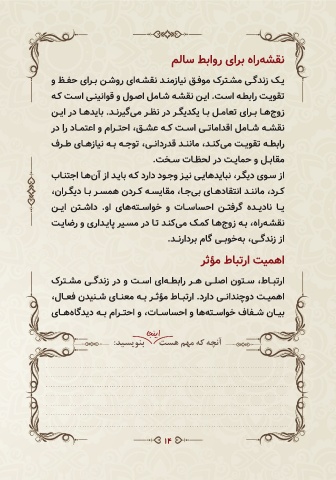 نقشه‌راه برای روابط سالم
یک زندگی مشترک موفق نیازمند نقشه‌ای روشن برای حفظ و
تقویت رابطه است. این نقشه شامل اصول و قوانینی است که
زوج‌ها برای تعامل با یکدیگر در نظر می‌گیرند. بایدها در این
نقشه شامل اقداماتی است که عشق، احترام و اعتماد را در
رابطه تقویت می‌کند، مانند قدردانی، توجه به نیازهای طرف
مقابل و حمایت در لحظات سخت.
از سوی دیگر، نبایدهایی نیز وجود دارد که باید از آن‌ها اجتناب
کرد، مانند انتقادهای بی‌جا، مقایسه کردن همسر با دیگران،
یا نادیده گرفتن احساسات و خواسته‌های او. داشتن این
نقشه‌راه، به زوج‌ها کمک می‌کند تا در مسیر پایداری و رضایت
از زندگی، به‌خوبی گام بردارند.
اهمیت ارتباط مؤثر
ارتباط، ستون اصلی هر رابطه‌ای است و در زندگی مشترک
اهمیت دوچندانی دارد. ارتباط مؤثر به معنای شنیدن فعال،
بیان شفاف خواسته‌ها و احساسات، و احترام به دیدگاه‌های
آنچه که مهم هست اینجا بنویسید:
۱۴